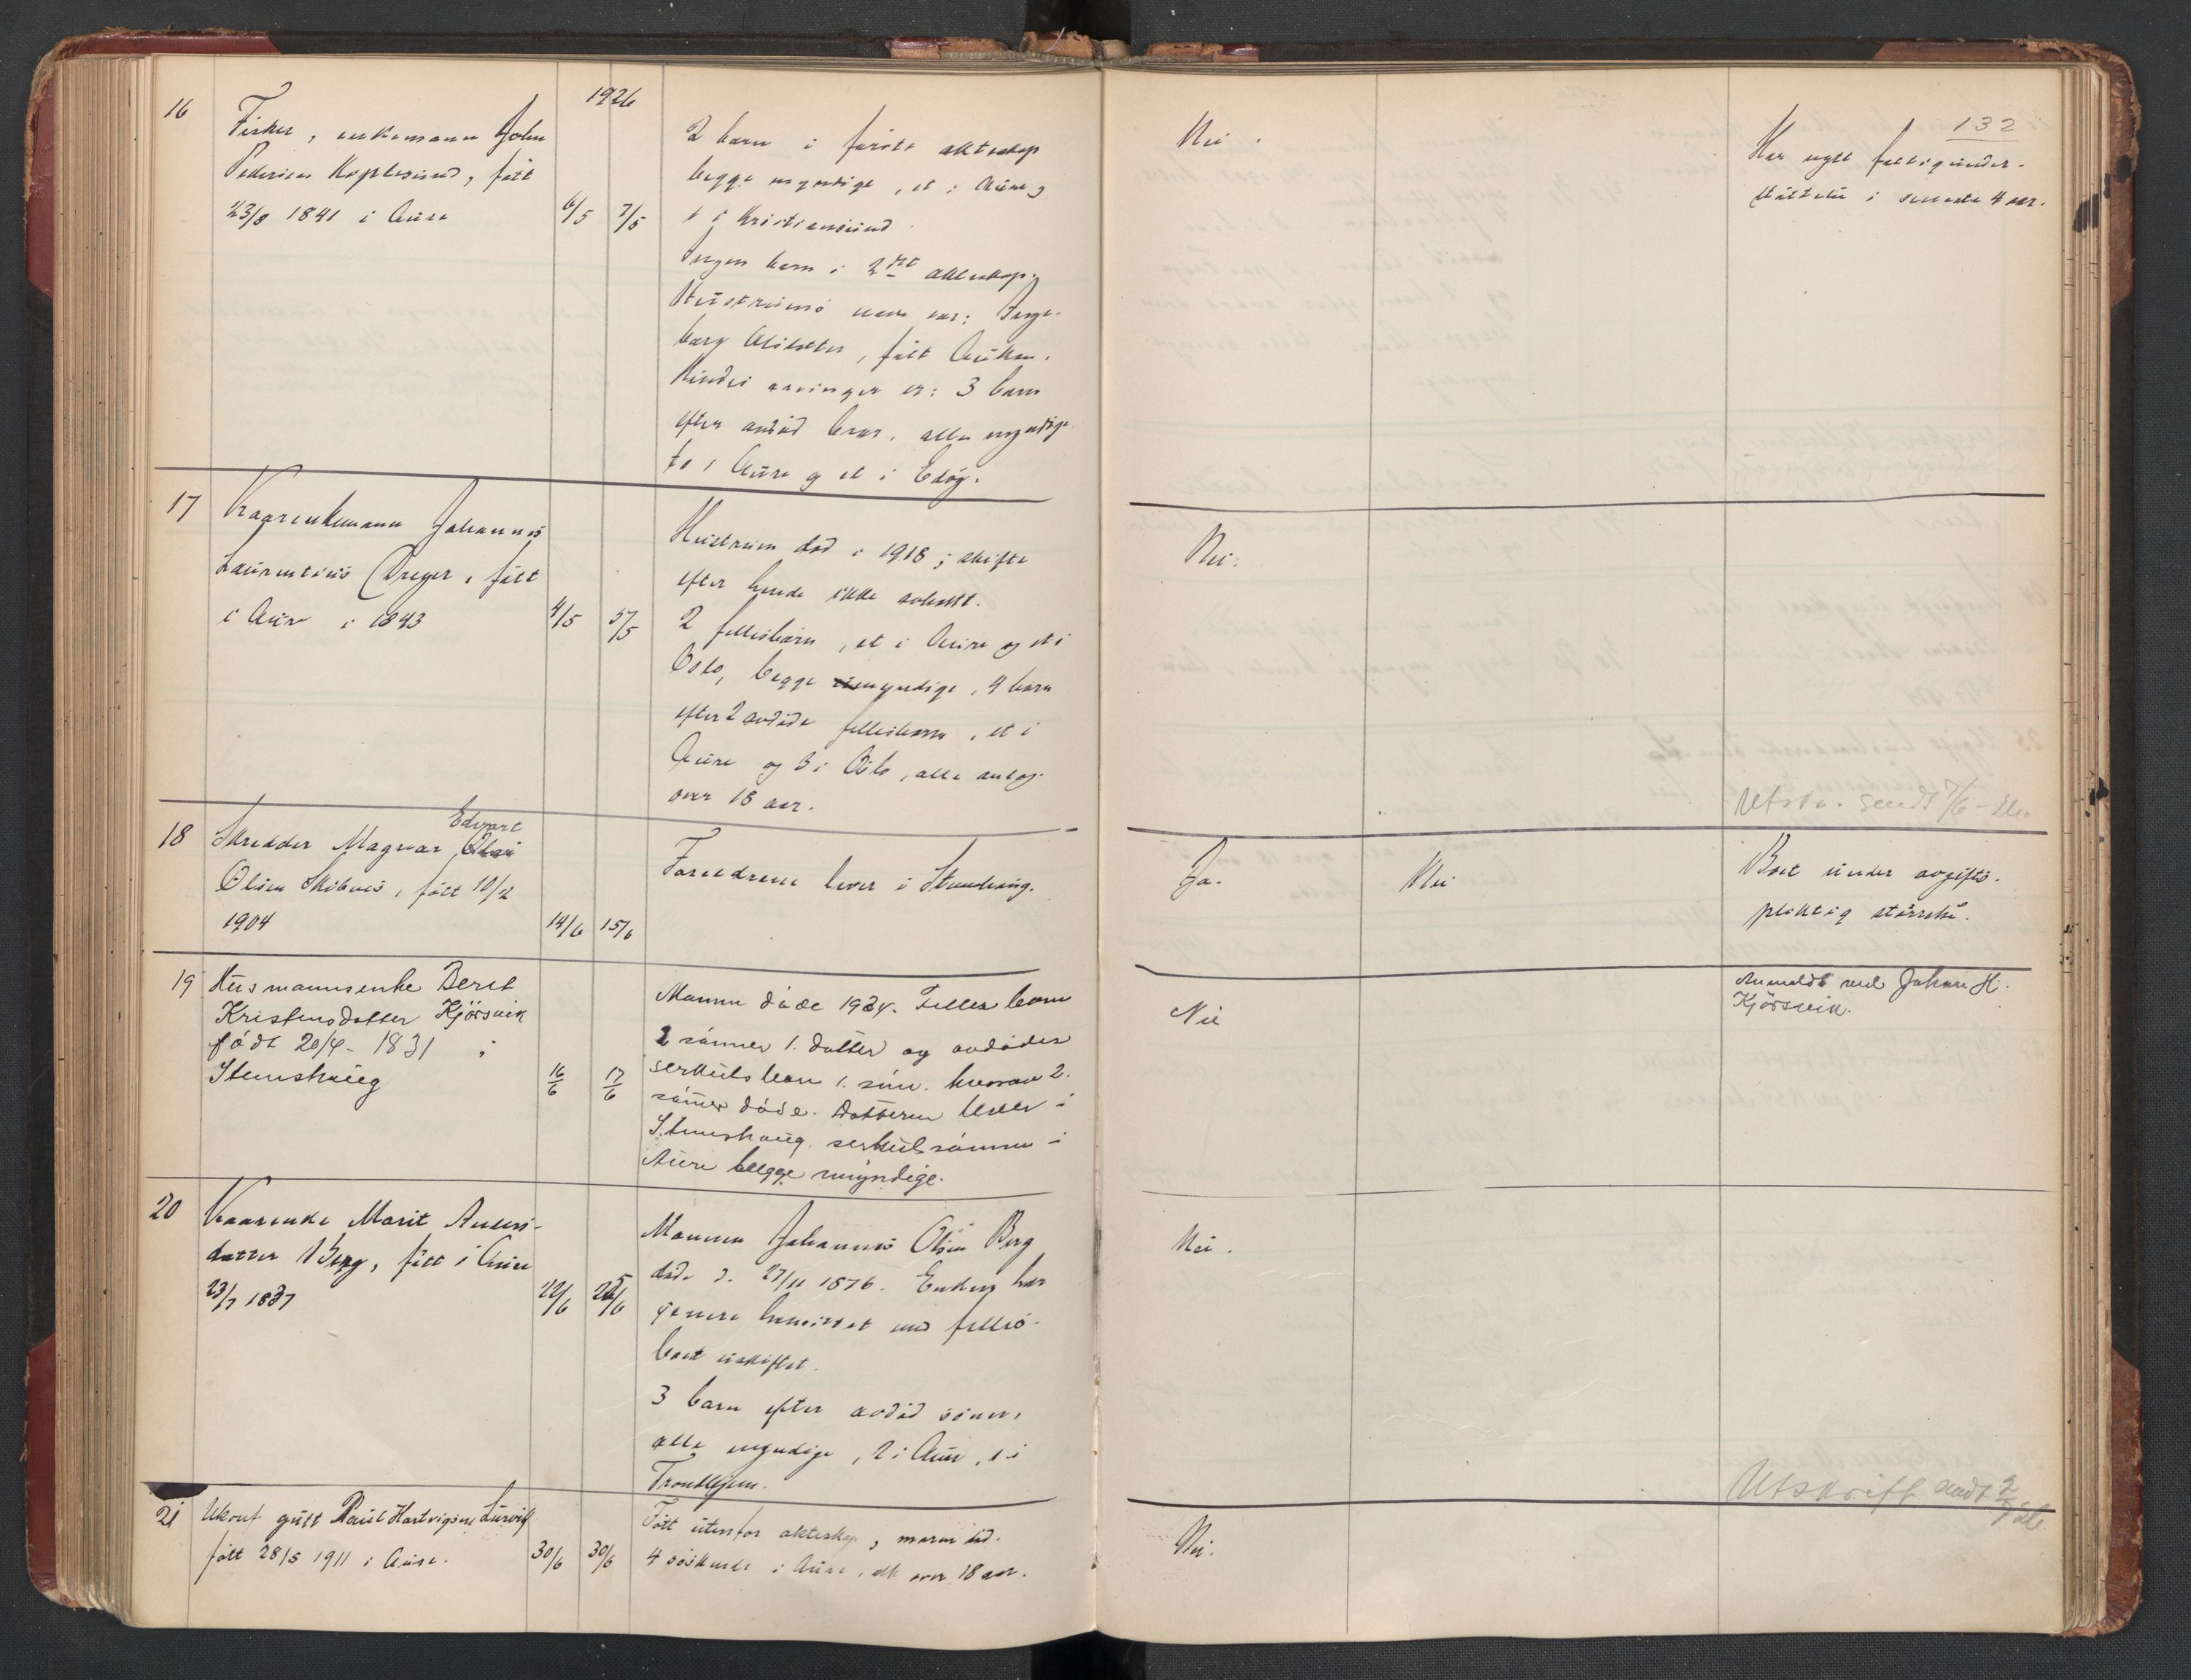 1926
132
16
Fisker, enkemann John
Pedersen Koplesund, født
23/8 1841 i Aure
6/5 7/5
2 barn i første ekteskap
begge myndige, et i Aure og
1 i Kristiansund.
Ingen barn i 2det ekteskap.
Hustruens navn var: Inge-
borg Olsdatter, født Auken.
Hendes arvinger er: 3 barn
efter avdød bror, alle myndige
to i Aure og et i Edøy.
Nei.
Har nytt fattigunder-
støttelse i seneste 4 aar.
17
Kaarenkemann Johannes
Laurentius Dreyer, født
i Aure i 1843
4/5 5/5
Hustruen død i 1918; skifte
efter hende ikke avholdt.
2 fellesbarn, et i Aure og et i
Oslo, begge myndige, 4 barn
efter 2 avdøde fellesbarn, et i
Aure og 3 i Oslo, alle antag.
over 18 aar.
Nei.
Utskr. sendt 7/6-26.
18
Skredder Magnar Edvart
Olsen Skibnes, født 10/2
1904
14/6 15/6
Foreldrene lever i Stemshaug.
Ja.
Nei
Boet under avgifts-
pliktig størrelse.
19
Husmannsenke Beret
Kristensdatter Kjörsvik
födt 20/4-1831 i
Stemshaug
16/6 17/6
Mannen döde 1924. Felles barn
2 sönner 1. datter og avdödes
serkuls barn 1. sön. hvorav 2.
sönner döde. Datteren lever i
Stemshaug. serkulsönnen i
Aure begge myndige.
Nei
Anmeldt ved Johan H.
Kjörsvik.
20
Kaarenke Marit Anders-
datter Berg, født i Aure
23/7 1837
22/6 25/6
Mannen Johannes Olsen Berg
døde d. 27/11 1876. Enken har
senere hensittet med felles-
boet uskiftet.
3 barn efter avdød sønn,
alle myndige, 2 i Aure, 1 i
Trondhjem.
Nei.
Utskrift sendt 2/7 26
21
Ukonf. gutt Paul Hartvigsen Lurvik
født 28/5 1911 i Aure.
30/6 30/6
Født utenfor ekteskap, moren død.
4 søskende i Aure, alle over 18 aar.
Nei.